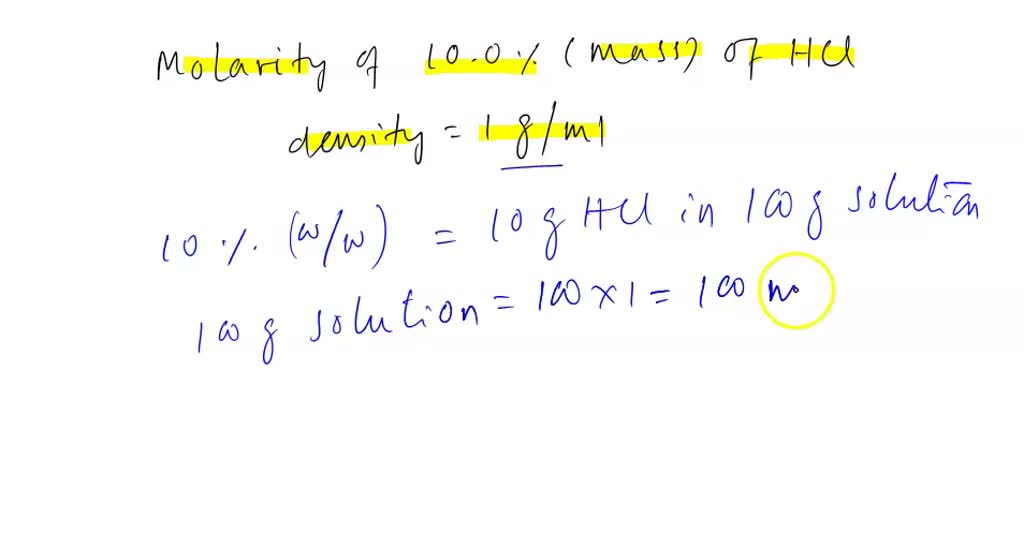 Molarity of 10.0% (mass) of HCl
density = 1 g/ml
10 %. (w/w) = 10 g HCl in 100 g solution
100 g solution = 100 × 1 = 100 m